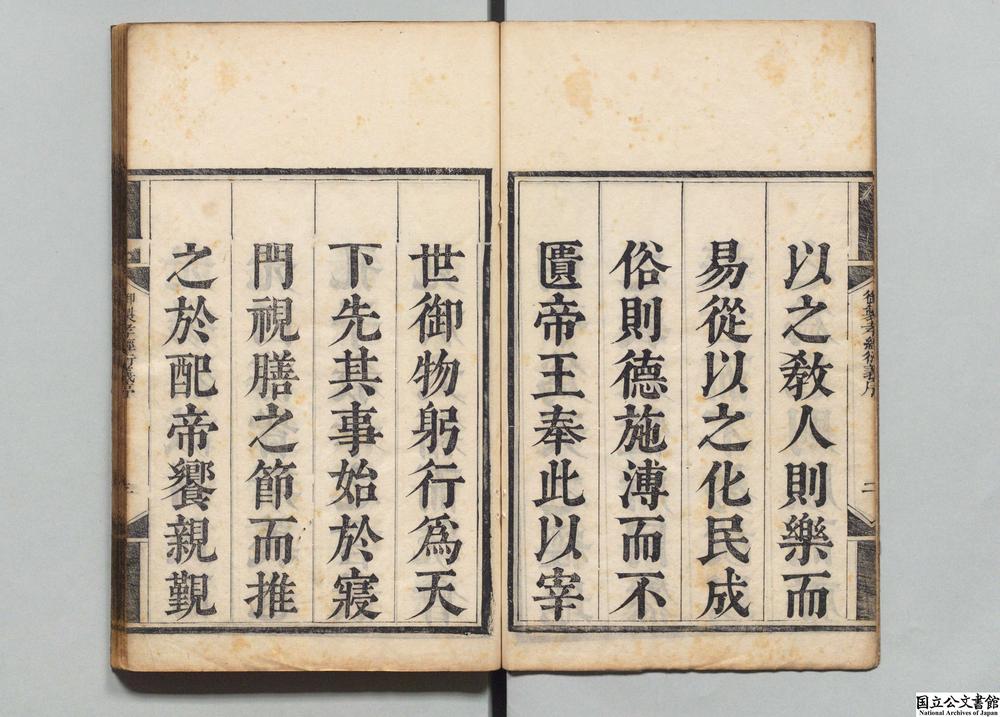 御製孝經衍義序
二
以之教人則樂而
易從以之化民成
俗則德施溥而不
匱帝王奉此以宰
世御物躬行為天
下先其事始於寢
門視膳之節而推
之於配帝饗親覲
御製孝經衍義序
国立公文書館
National Archives of Japan